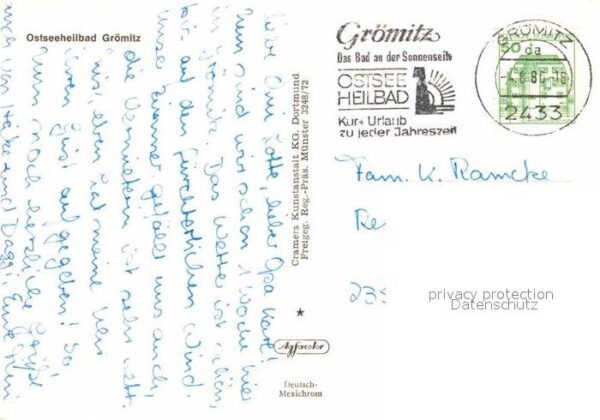 Ostseeheilbad Grömitz
Liebe Omi Lotte, lieber Opa Karl!
Nun sind wir schon 1 Woche hier
in Grömitz. Das Wetter ist schön,
bis auf den fürchterlichen Wind.
Unser Zimmer gefällt uns auch,
die Vermieterin ist sehr nett.
hat meine
Gips auf gegeben! So,
nun noch herzliche Grüße
auch von Heike und Dagi! Eure
Cramers Kunstanstalt KG, Dortmund
Freigeg. Reg.-Präs. Münster 3248/72
Agfacolor
Deutsch-
Mexichrom
Grömitz
Das Bad an der Sonnenseite
OSTSEE
HEILBAD
Kur + Urlaub
zu jeder Jahreszeit
GRÖMITZ
50
da
2433
Fam. K. Ramcke
Re
23
privacy protection
Datenschutz